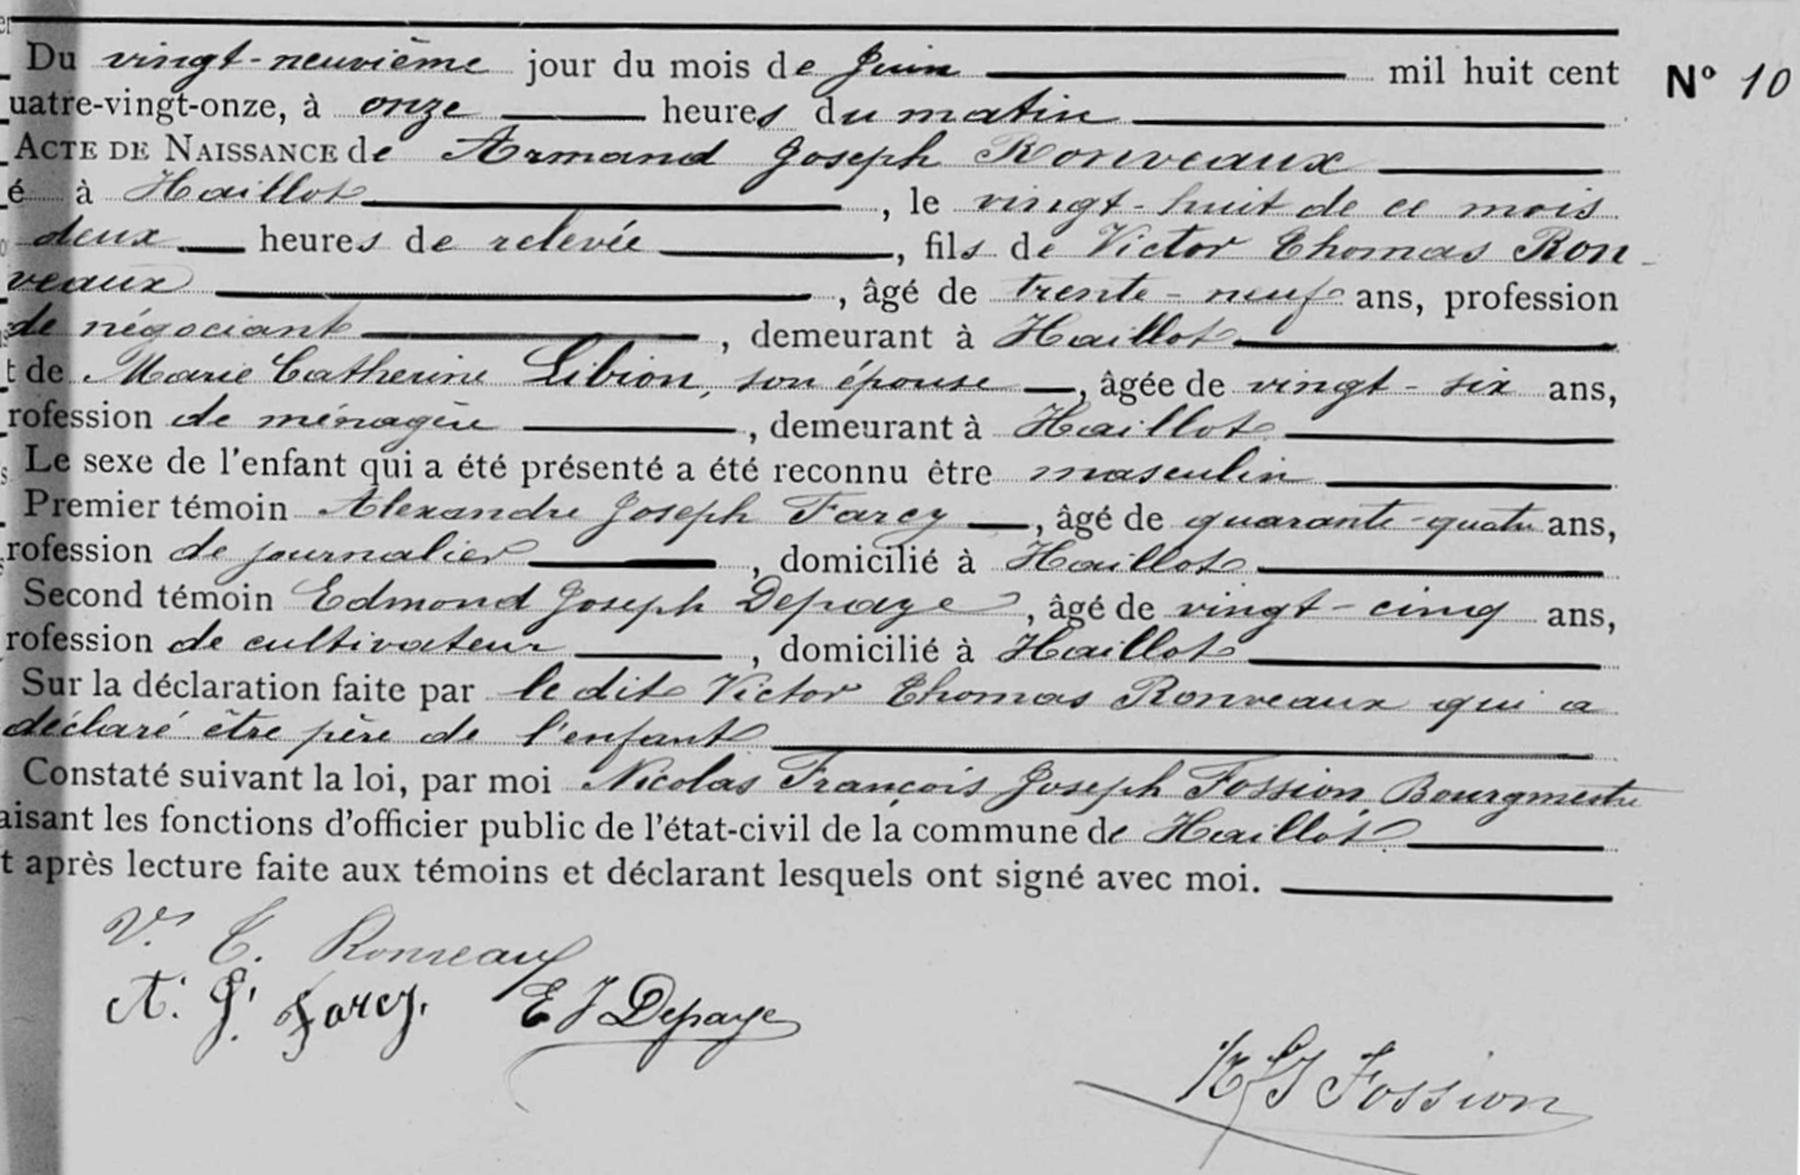 Du vingt-neuvième jour du mois de Juin mil huit cent Nº 10
uatre-vingt-onze, à onze heures du matin
ACTE DE NAISSANCE de Armand Joseph Ronveaux
é à Haillot, le vingt-huit de ce mois
deux heures de relevée, fils de Victor Thomas Ron-
veaux, âgé de trente-neuf ans, profession
de négociant, demeurant à Haillot
t de Marie Catherine Libion, son épouse, âgée de vingt-six ans,
rofession de ménagère, demeurant à Haillot
Le sexe de l'enfant qui a été présenté a été reconnu être masculin
Premier témoin Alexandre Joseph Farcy, âgé de quarante-quatre ans,
rofession de journalier, domicilié à Haillot
Second témoin Edmond Joseph Depaye, âgé de vingt-cinq ans,
rofession de cultivateur, domicilié à Haillot
Sur la déclaration faite par le dit Victor Thomas Ronveaux qui a
déclaré être père de l'enfant
Constaté suivant la loi, par moi Nicolas François Joseph Fossion, Bourgmestre
aisant les fonctions d'officier public de l'état-civil de la commune de Haillot
t après lecture faite aux témoins et déclarant lesquels ont signé avec moi.
Vr T. Ronveaux
A. J. Farcy. E J Depaye
N F J Fossion